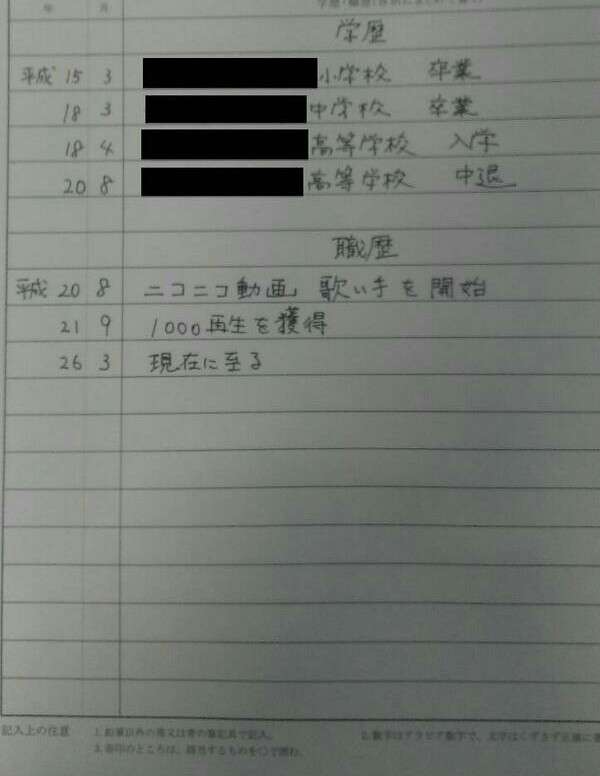 年 月
学歴
平成 15 3 小学校 卒業
18 3 中学校 卒業
18 4 高等学校 入学
20 8 高等学校 中退
職歴
平成 20 8 ニコニコ動画 歌い手を開始
21 9 1000再生を獲得
26 3 現在に至る
記入上の注意 1. 鉛筆以外の黒又は青の筆記具で記入。 2. 数字はアラビア数字で、文字はくずさず正確に書
3. ※印のところは、該当するものを○で囲む。